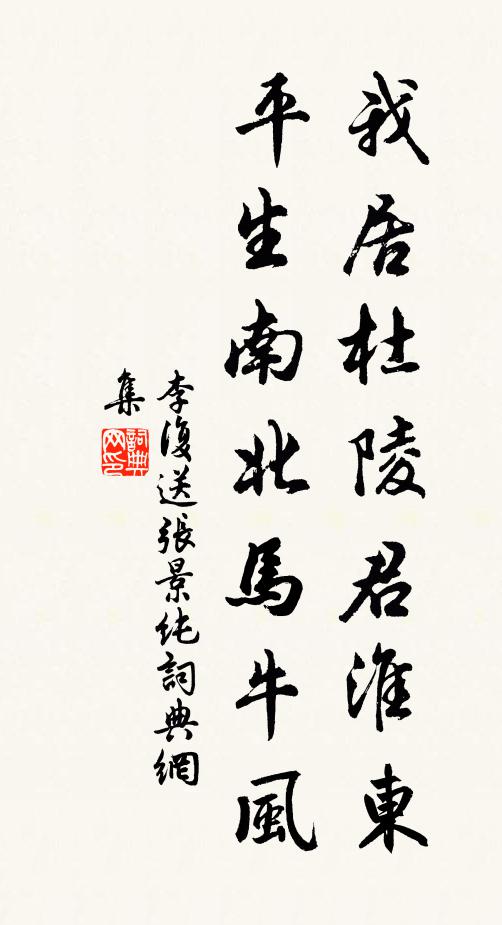 我居杜陵君淮東
平生南北馬牛風
李復送張景純詞典網
集
詞典网印